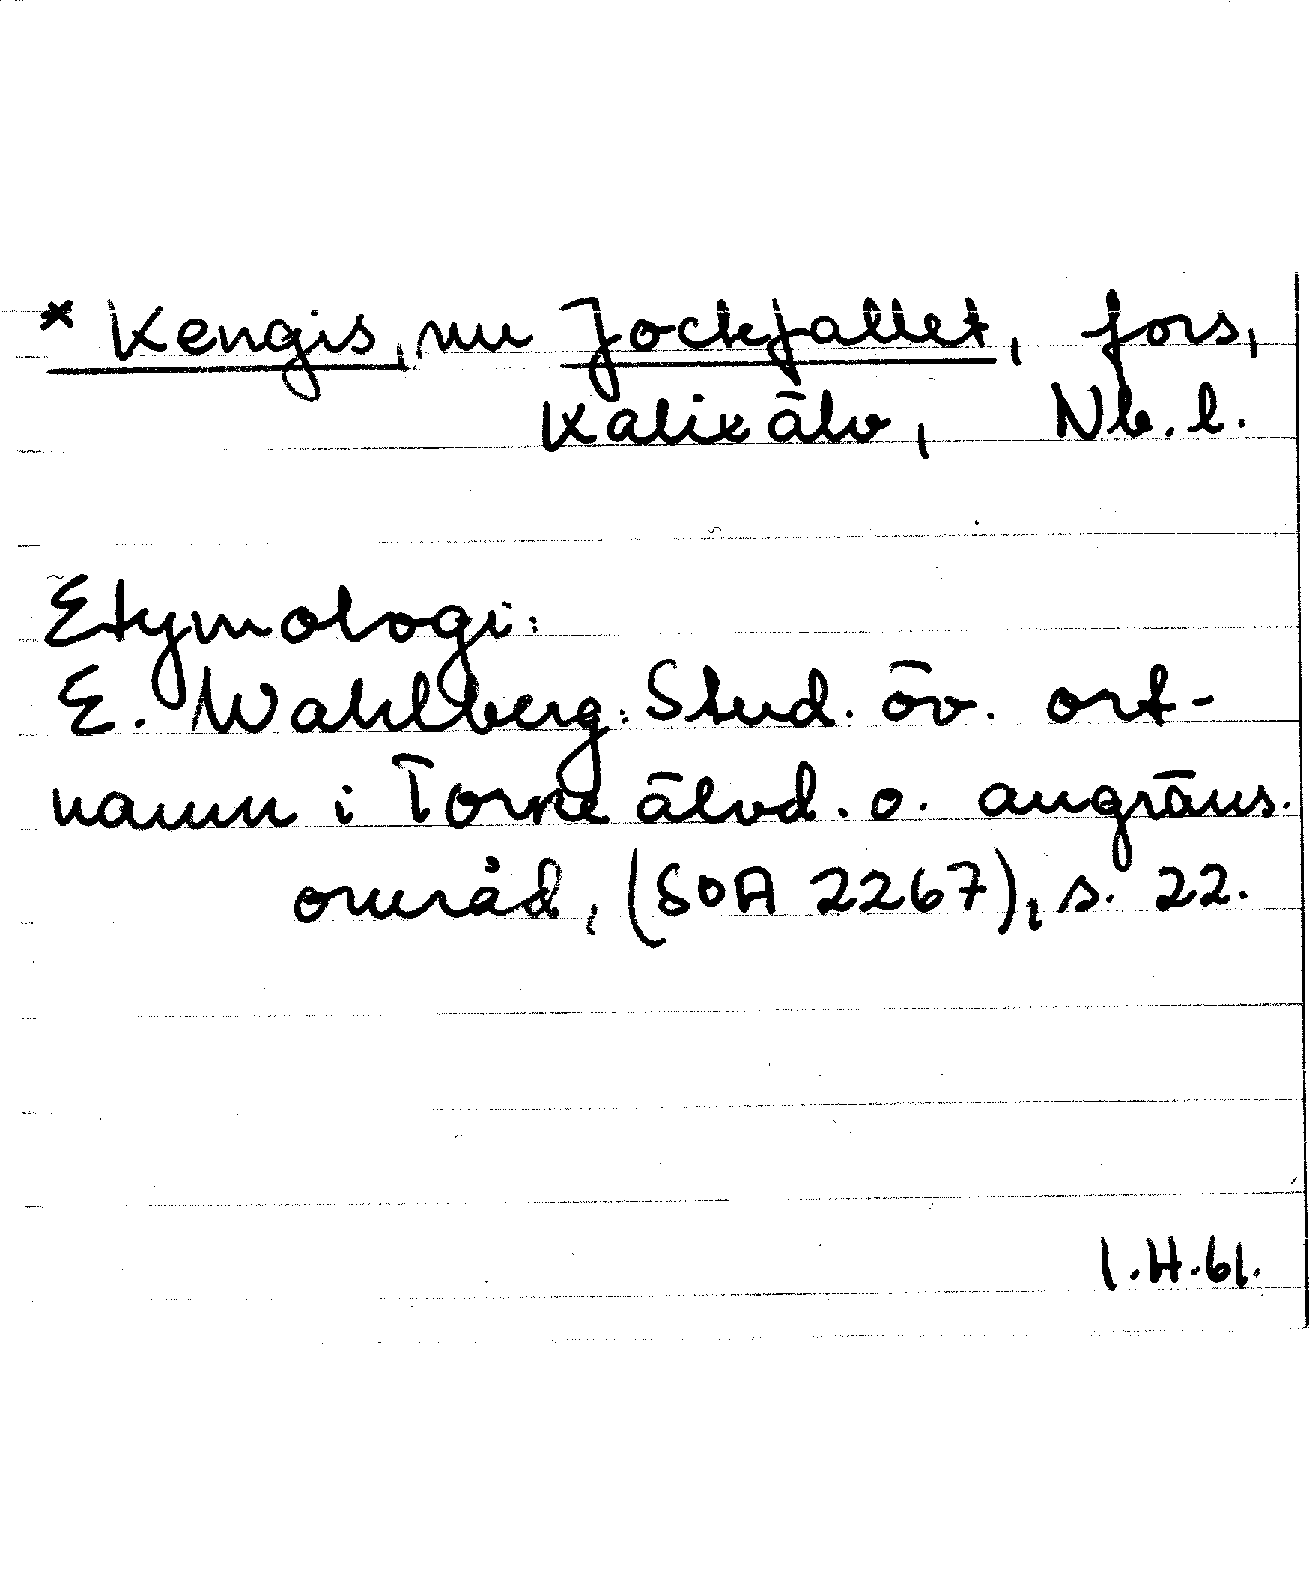 * Kengis, nu Jockfallet, fors,
Kalix älv, Nb. l.
Etymologi:
E. Wahlberg: Stud. öv. ort-
namn i Torne älvd. o. angräns.
områd, (SOA 2267), s. 22.
I.H.61.